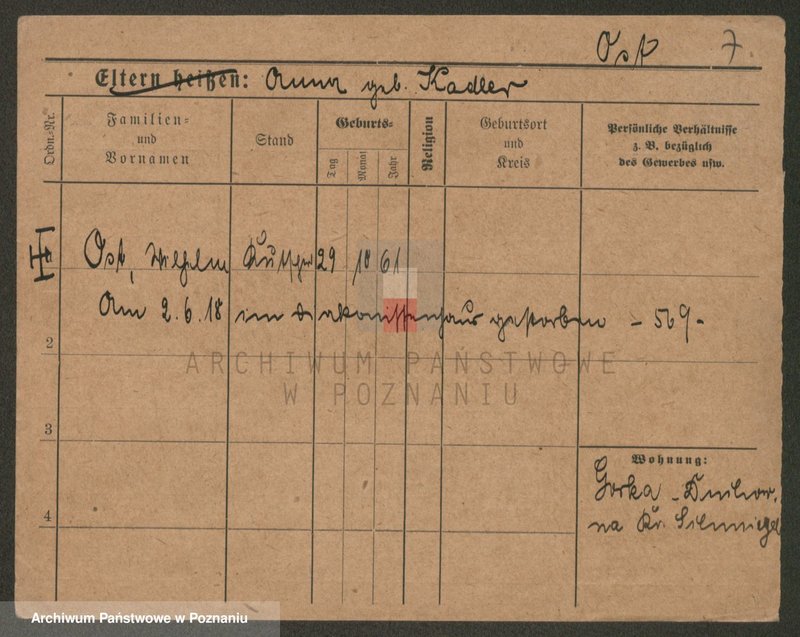 Ost 7
Eltern heißen: Anna geb. Kadler
Ordn.-Nr.
Familien-
und
Vornamen
Stand
Geburts-
Tag
Monat
Jahr
Religion
Geburtsort
und
Kreis
Persönliche Verhältnisse
z. B. bezüglich
des Gewerbes usw.
Ost, Wilhelm Kutscher 29 10 61
Am 2.6.18 im Diakonissenhaus gestorben - 569 -
2
ARCHIWUM PAŃSTWOWE
W POZNANIU
3
Wohnung:
Gorka - Duchow.
na Kr. Schmiegel
4
Archiwum Państwowe w Poznaniu